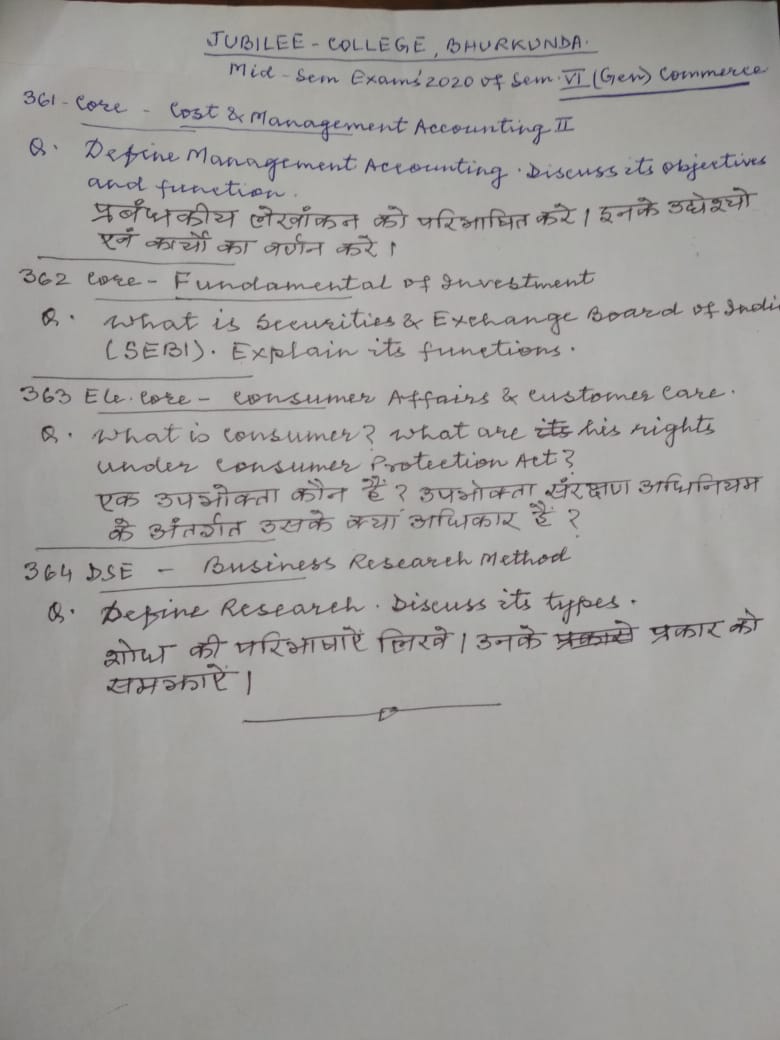 JUBILEE - COLLEGE, BHURKUNDA.
Mid - Sem Exams' 2020 of Sem. VI (Gen) Commerce
361 - Core - Cost & Management Accounting II
Q. Define Management Accounting. Discuss its objectives
and function.
प्रबंधकीय लेखांकन को परिभाषित करे। इनके उद्येश्यो
एवं कार्यो का वर्णन करे।
362 Core - Fundamental of Investment
Q. What is Securities & Exchange Board of Indi
(SEBI). Explain its functions.
363 Ele. Core - Consumer Affairs & Customer Care.
Q. What is Consumer? What are its his rights
under Consumer Protection Act?
एक उपभोक्ता कौन है? उपभोक्ता संरक्षण अधिनियम
के अंतर्गत उसके क्या अधिकार हैं?
364 DSE - Business Research Method
Q. Define Research. Discuss its types.
शोध की परिभाषाऐं लिखे। उनके प्रकारो प्रकार को
समझाऐं।